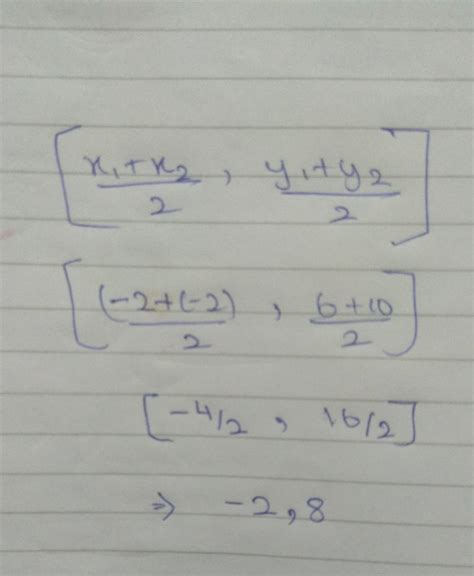 [x₁+x₂/2 , y₁+y₂/2]
[(-2+(-2)/2 , 6+10/2]
[-4/2 , 16/2]
⇒ -2,8